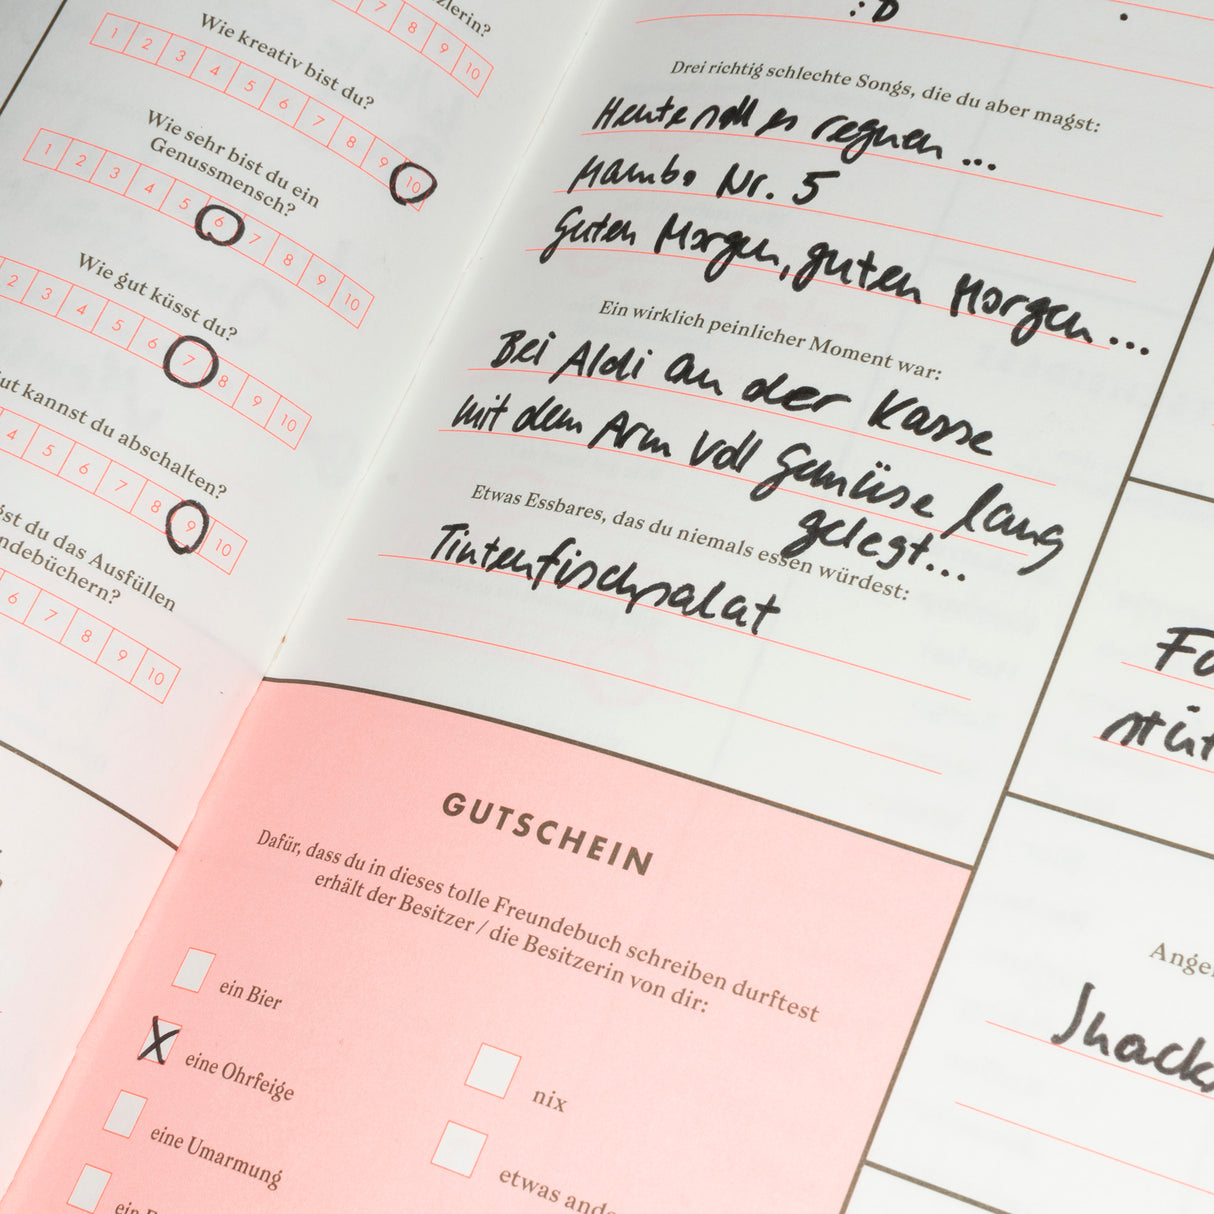 1 2 3 4 5 6 7 8 9 10
Wie kreativ bist du?
1 2 3 4 5 6 7 8 9 10
Wie sehr bist du ein
Genussmensch?
1 2 3 4 5 6 7 8 9 10
Wie gut küsst du?
2 3 4 5 6 7 8 9 10
kannst du abschalten?
4 5 6 7 8 9 10
du das Ausfüllen
6 7 8 9 10
:D
Drei richtig schlechte Songs, die du aber magst:
Heute soll es regnen ...
Mambo Nr. 5
Guten Morgen, guten Morgen ...
Ein wirklich peinlicher Moment war:
Bei Aldi an der Kasse
mit dem Arm voll Gemüse lang
gelegt...
Etwas Essbares, das du niemals essen würdest:
Tintenfischsalat
GUTSCHEIN
Dafür, dass du in dieses tolle Freundebuch schreiben durftest
erhält der Besitzer / die Besitzerin von dir:
ein Bier
eine Ohrfeige
eine Umarmung
nix
etwas
Snacks